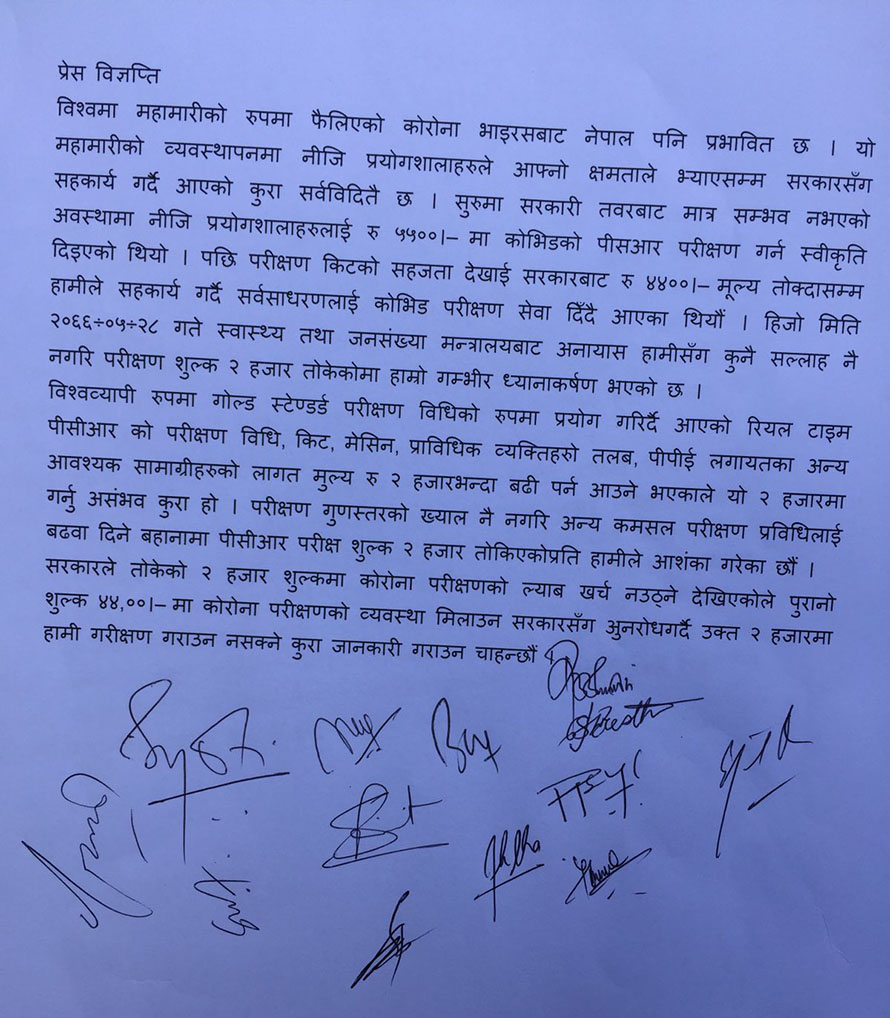 प्रेस विज्ञप्ति
विश्वमा महामारीको रुपमा फैलिएको कोरोना भाइरसबाट नेपाल पनि प्रभावित छ । यो
महामारीको व्यवस्थापनमा नीजि प्रयोगशालाहरुले आफ्नो क्षमताले भ्याएसम्म सरकारसँग
सहकार्य गर्दै आएको कुरा सर्वविदितै छ । सुरुमा सरकारी तवरबाट मात्र सम्भव नभएको
अवस्थामा नीजि प्रयोगशालाहरुलाई रु ५५००।– मा कोभिडको पीसआर परीक्षण गर्न स्वीकृति
दिइएको थियो । पछि परीक्षण किटको सहजता देखाई सरकारबाट रु ४४००।– मूल्य तोक्दासम्म
हामीले सहकार्य गर्दै सर्वसाधरणलाई कोभिड परीक्षण सेवा दिँदै आएका थियौं । हिजो मिति
२०६६÷०५÷२८ गते स्वास्थ्य तथा जनसंख्या मन्त्रालयबाट अनायास हामीसँग कुनै सल्लाह नै
नगरि परीक्षण शुल्क २ हजार तोकेकोमा हाम्रो गम्भीर ध्यानाकर्षण भएको छ ।
विश्वव्यापी रुपमा गोल्ड स्टेण्डर्ड परीक्षण विधिको रुपमा प्रयोग गरिर्दै आएको रियल टाइम
पीसीआर को परीक्षण विधि, किट, मेसिन, प्राविधिक व्यक्तिहरुो तलब, पीपीई लगायतका अन्य
आवश्यक सामाग्रीहरुको लागत मुल्य रु २ हजारभन्दा बढी पर्न आउने भएकाले यो २ हजारमा
गर्नु असंभव कुरा हो । परीक्षण गुणस्तरको ख्याल नै नगरि अन्य कमसल परीक्षण प्रविधिलाई
बढवा दिने बहानामा पीसीआर परीक्ष शुल्क २ हजार तोकिएकोप्रति हामीले आशंका गरेका छौं ।
सरकारले तोकेको २ हजार शुल्कमा कोरोना परीक्षणको ल्याब खर्च नउठ्ने देखिएकोले पुरानो
शुल्क ४४,००।– मा कोरोना परीक्षणको व्यवस्था मिलाउन सरकारसँग अुनरोधगर्दै उक्त २ हजारमा
हामी गरीक्षण गराउन नसक्ने कुरा जानकारी गराउन चाहन्छौं